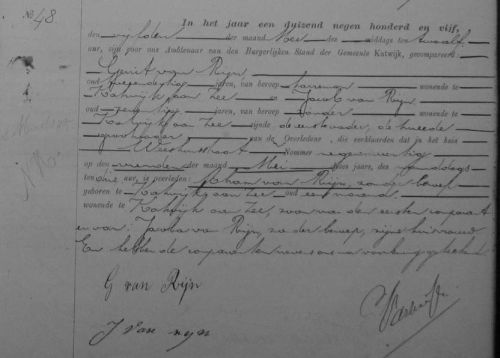 No. 48.
In het jaar een duizend negen honderd en vijf,
den vijfden der maand Mei des middags ten twaalf
ure, zijn voor ons Ambtenaar van den Burgerlijken Stand der Gemeente Katwijk, gecompareerd:
Gerrit van Rijn
oud jaren, van beroep wonende te
Katwijk aan Zee en Jacob van Rijn
oud jaren, van beroep zonder wonende te
Katwijk aan Zee zijnde de eerste vader, de tweede
grootvader van de Overledene, die verklaarden dat in het huis
Nommer negenveertig
op den vierden der maand Mei dezes jaars, des middags
ten drie ure, is overleden: van Rijn, zonder beroep
geboren te Katwijk aan Zee oud een maand
wonende te Katwijk aan Zee, zoon van de eersten comparant
en van Jacoba van Rijn, zonder beroep, zijne huisvrouw.
En hebben de comparanten nevens ons na voorlezing geteekend
G van Rijn
J van rijn